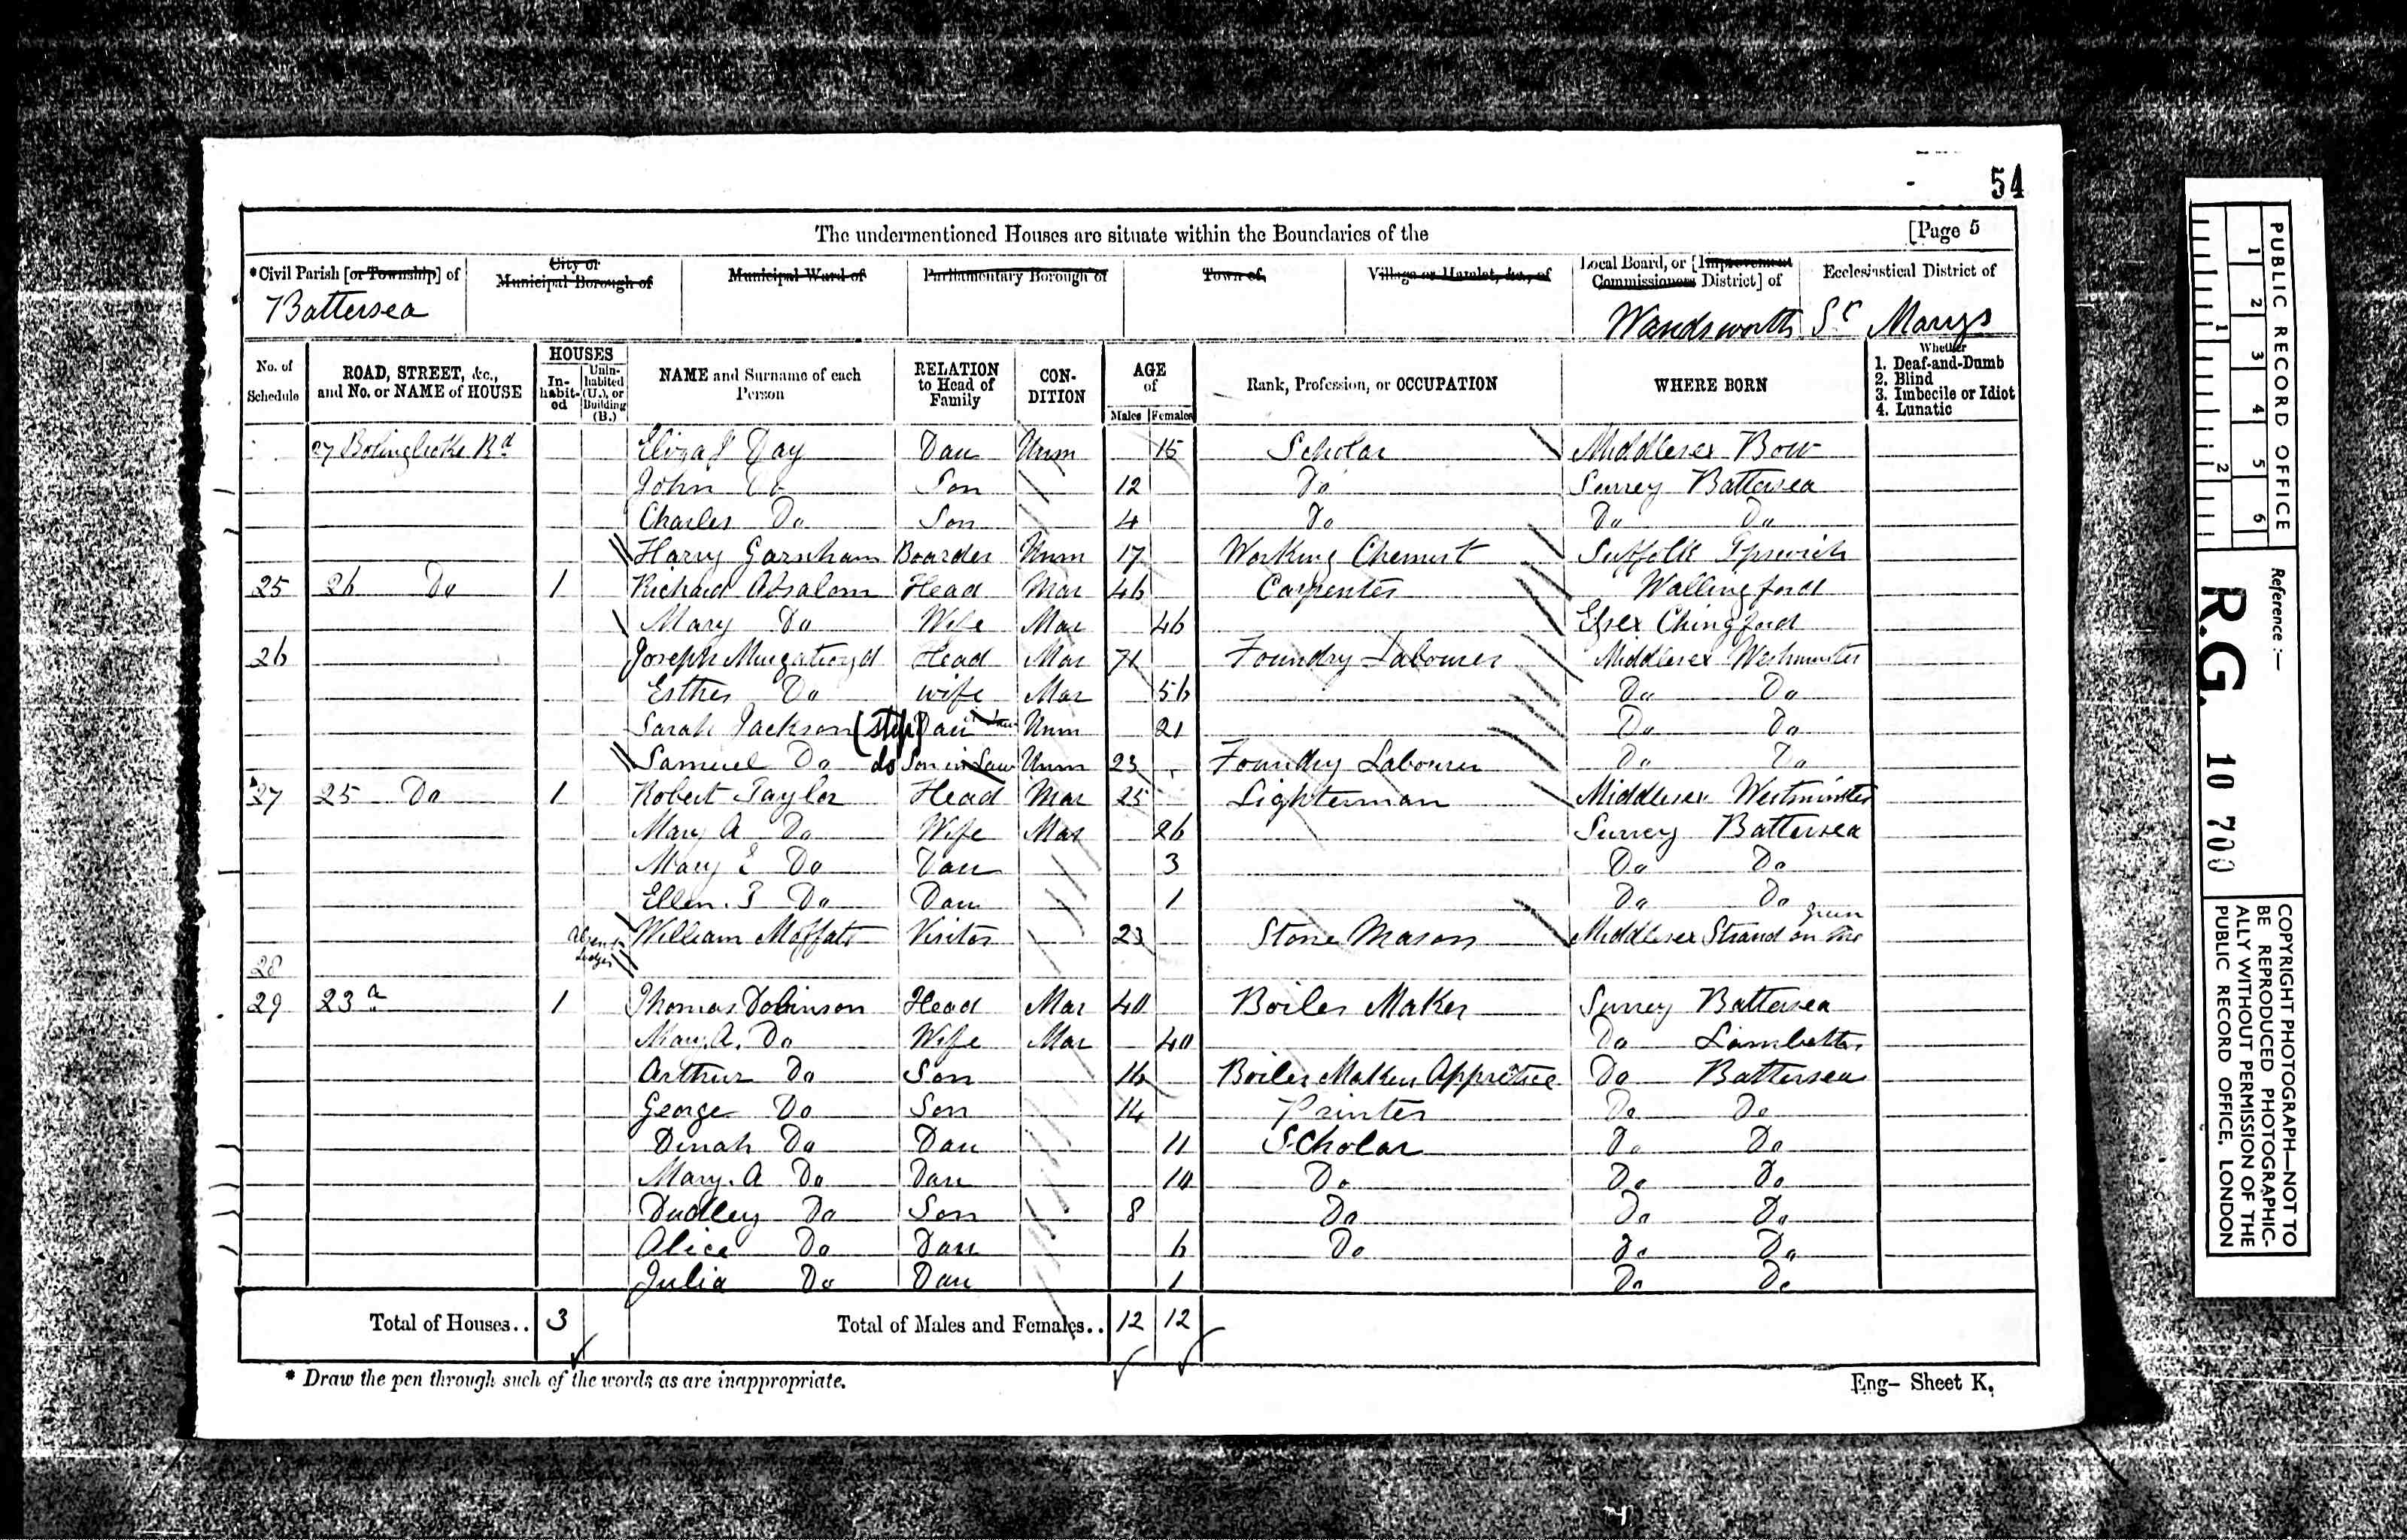 54
The undermentioned Houses are situate within the Boundaries of the [Page 5
*Civil Parish [or Township] of City or Municipal Borough of Municipal Ward of Parliamentary Borough of Town of Village or Hamlet, &c., of Local Board, or [Improvement Commissioners District] of Ecclesiastical District of
Battersea Wandsworth St Marys
No. of Schedule ROAD, STREET, &c., and No. or NAME of HOUSE HOUSES Inhabited Uninhabited (U.), or Building (B.) NAME and Surname of each Person RELATION to Head of Family CONDITION AGE of Males Females Rank, Profession, or OCCUPATION WHERE BORN Whether 1. Deaf-and-Dumb 2. Blind 3. Imbecile or Idiot 4. Lunatic
27 Bolingbroke Rd Eliza J Day Dau Unm 15 Scholar Middlesex Bow
John Do Son 12 Do Surrey Battersea
Charles Do Son 4 Do Do Do
Harry Garnham Boarder Unm 17 Working Chemist Suffolk Ipswich
25 26 Do 1 Richard Absalom Head Mar 46 Carpenter Wallingford
Mary Do Wife Mar 46 Essex Chingford
26 Joseph Murgatroyd Head Mar 71 Foundry Labourer Middlesex Westminster
Esther Do wife Mar 56 Do Do
Sarah Jackson (step) Dau in Law Unm 21 Do Do
Samuel Do do Son in Law Unm 23 Foundry Labourer Do Do
27 25 Do 1 Robert Taylor Head Mar 25 Lighterman Middlesex Westminster
Mary A Do Wife Mar 26 Surrey Battersea
Mary E Do Dau 3 Do Do
Ellen Do Dau 1 Do Do
William Moffatt Visitor 23 Stone Mason Middlesex Strand on the Green
28 Absent Lodger
29 23a 1 Thomas Dobinson Head Mar 40 Boiler Maker Surrey Battersea
Mary A. Do Wife Mar 40 Do Lambeth
Arthur Do Son 16 Boiler Makers Apprentice Do Battersea
George Do Son 14 Printer Do Do
Dinah Do Dau 11 Scholar Do Do
Mary. A Do Dau 10 Do Do Do
Dudley Do Son 8 Do Do Do
Alice Do Dau 6 Do Do Do
Julia Do Dau 1 Do Do
Total of Houses.. 3 Total of Males and Females.. 12 12
* Draw the pen through such of the words as are inappropriate.
Eng– Sheet K.
PUBLIC RECORD OFFICE
1 2 3 4 5 6
1 2
Reference :—
R.G. 10 700
COPYRIGHT PHOTOGRAPH—NOT TO
BE REPRODUCED PHOTOGRAPHIC-
ALLY WITHOUT PERMISSION OF THE
PUBLIC RECORD OFFICE, LONDON